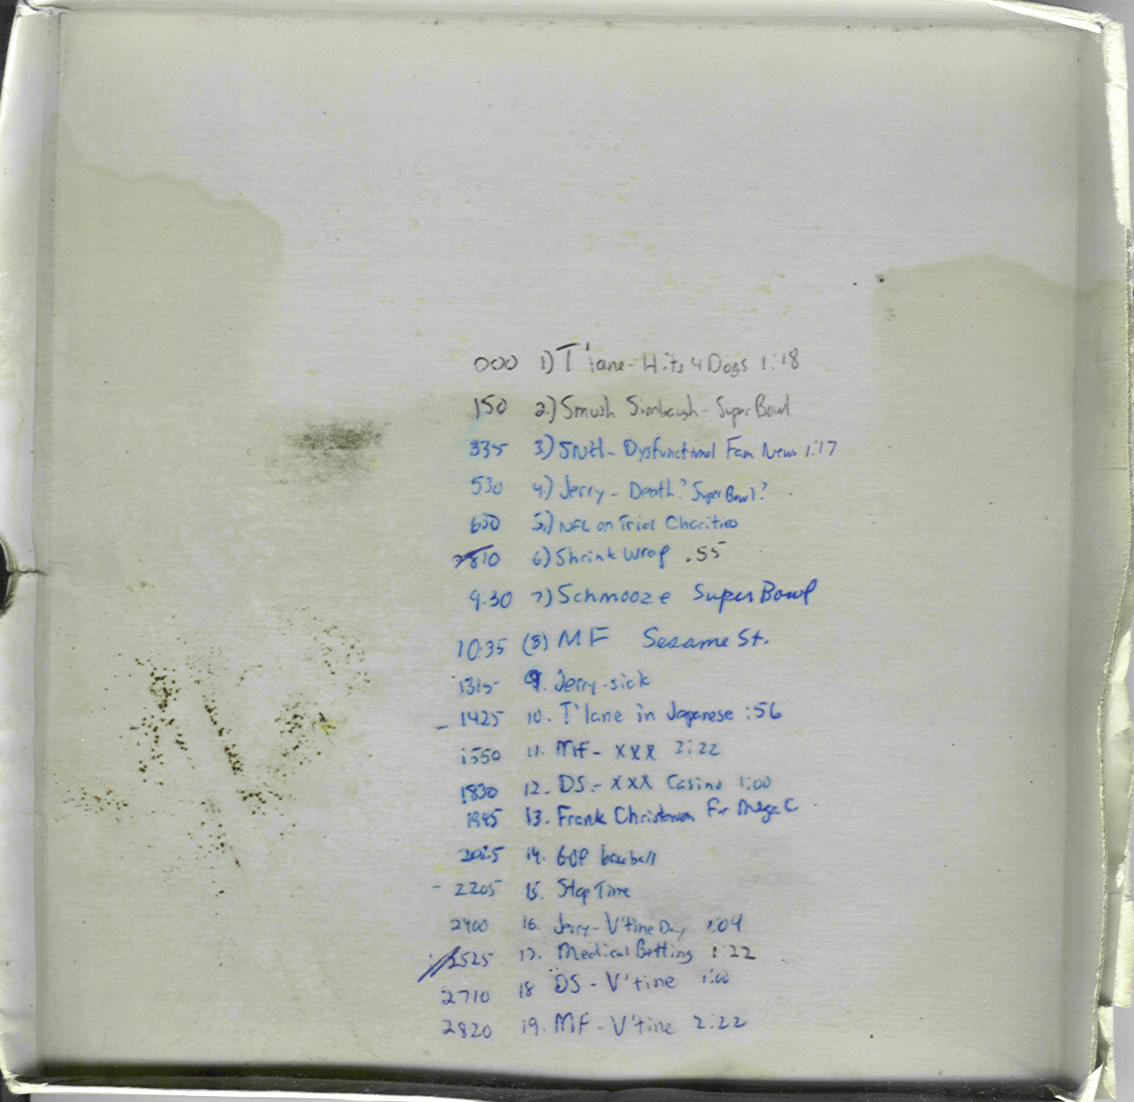 000 1) T'lane - Hits 4 Dogs 1:18
150 2.) Smush Simbaugh - Super Bowl
335 3) SNH - Dysfunctional Fam News 1:17
530 4.) Jerry - Death? Super Bowl?
650 5.) NFL on Trial Charities
810 6) Shrink Wrap .55
9.30 7) Schmooze Super Bowl
10:35 (8) MF Sesame St.
1315 9. Jerry - sick
- 1425 10. T'lane in Japanese :56
1550 11. MF - XXX 2:22
1830 12. DS - XXX Casino 1:00
1945 13. Frank Christman For Mega C
2025 14. GOP baseball
- 2205 15. Stop Time
2400 16. Jerry - V'tine Day 1:04
2525 17. Medical Betting 1:22
2710 18 DS - V'tine 1:00
2820 19. MF - V'tine 2:22